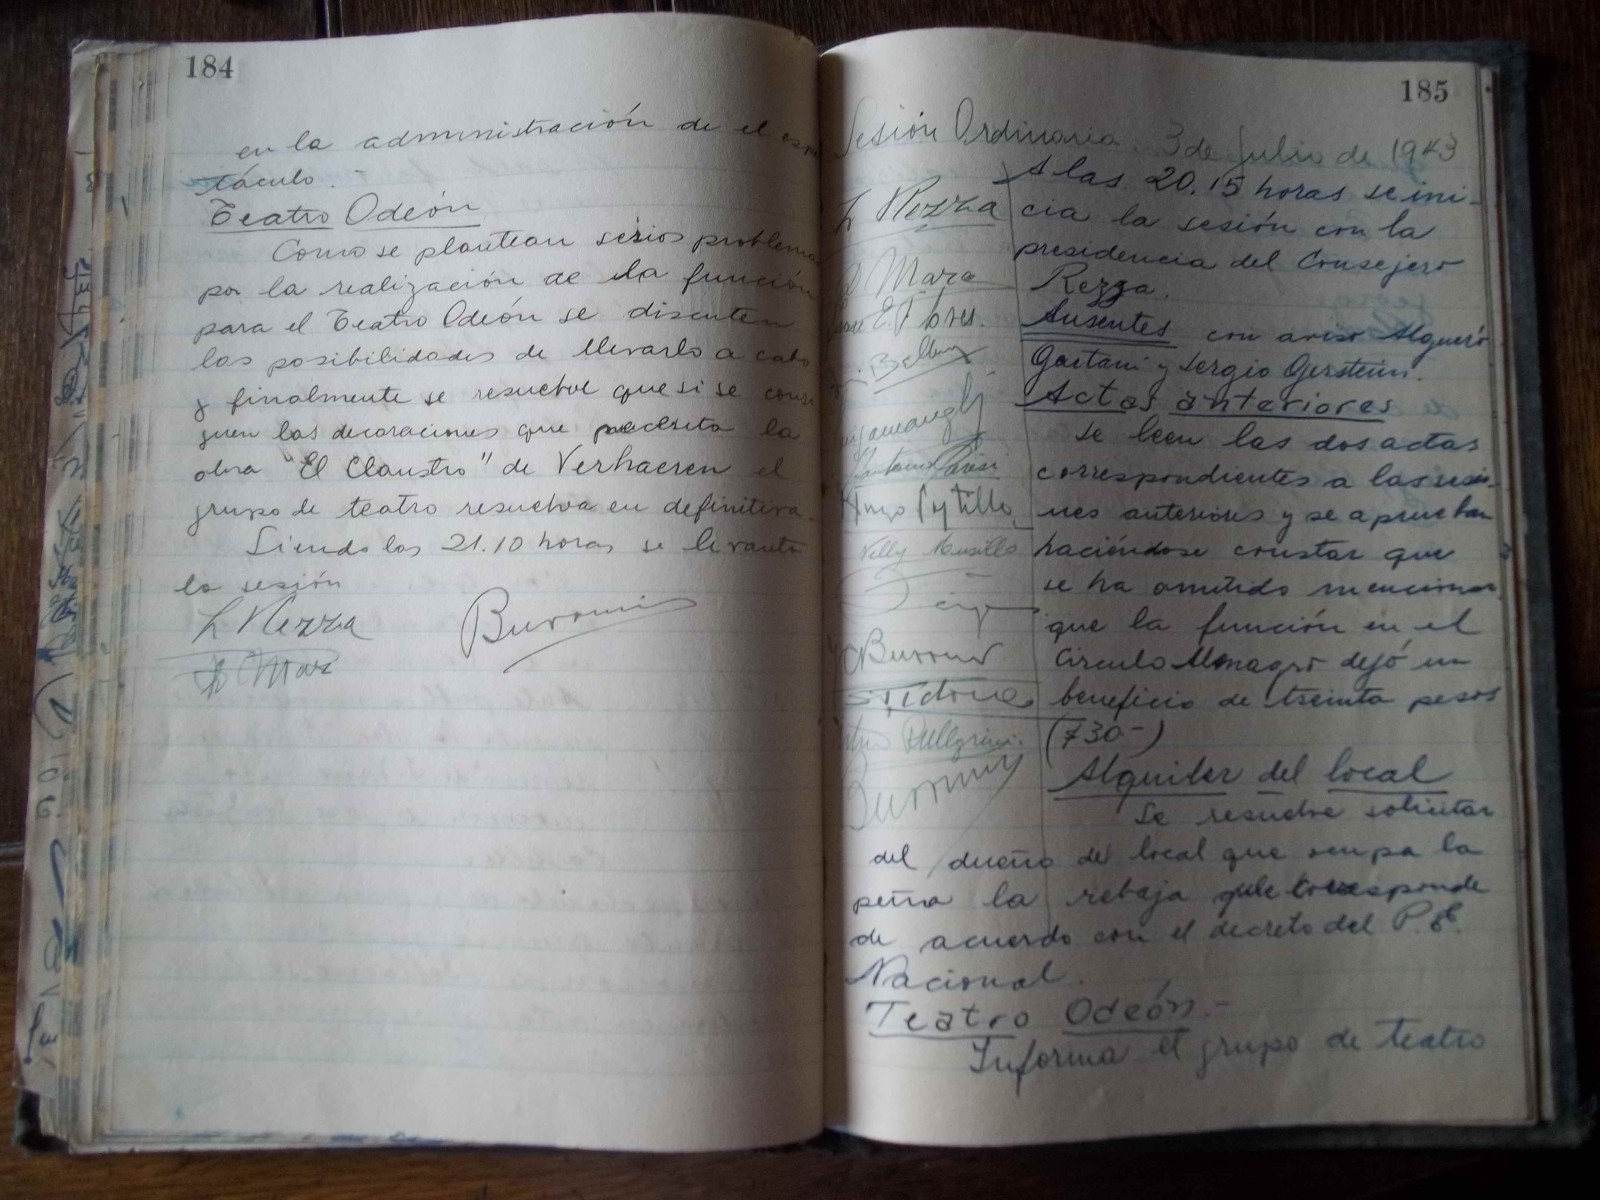 184
en la administración de el espe
táculo.
Teatro Odeón
Como se plantean serios problemas
por la realización de la función
para el Teatro Odeón se discuten
las posibilidades de llevarlo a cabo
y finalmente se resuelve que si se consi
guen las decoraciones que necesita la
obra "El Claustro" de Verhaeren el
grupo de teatro resuelva en definitiva.
Siendo las 21.10 horas se levanta
la sesión
L Rezza
Burromi
Marz
185
Sesión Ordinaria. 3 de Julio de 1943
A las 20.15 horas se ini-
cia la sesión con la
presidencia del Consejero
Rezza.
Ausentes con aviso Algueró
Gaetani y Sergio Gerstein.
Actas anteriores
Se leen las dos actas
correspondientes a las sesio-
nes anteriores y se aprueban
haciéndose constar que
se ha omitido mencionar
que la función en el
Circulo Almagro dejó un
beneficio de treinta pesos
(730-)
Alquiler del local
Se resuelve solicitar
del dueño del local que ocupa la
peña la rebaja que corresponde
de acuerdo con el decreto del P.E.
Nacional.
Teatro Odeón.-
Informa el grupo de teatro
L Rezza
Mara
E. Flores.
Hugo
Nelly Mansilla
Pellegrini.